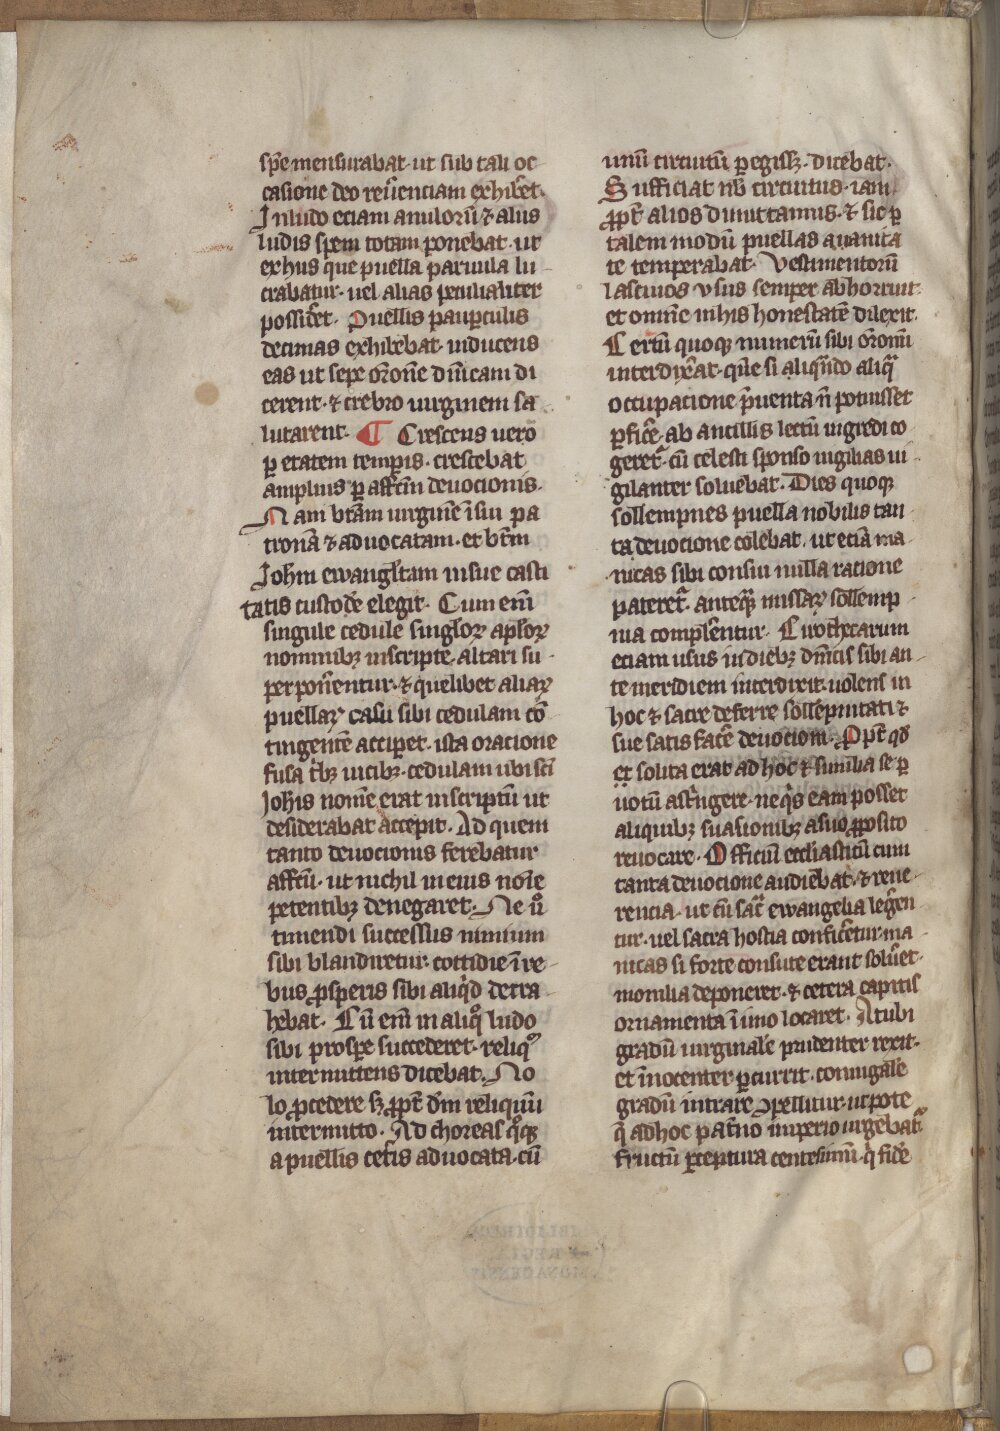 sp̄e mensurabat· ut sub tali oc
casione deo reu̓enciam exhib̓et·
In ludo eciam anuloru̅ ⁊ aliis
ludis spem totam ponebat· ut
ex hiis que puella paruula lu
crabatur· uel alias peculialiter
possid̓et· Puellis paup̱culis
decimas exhibebat· inducens
eas ut sepe or̄one dn̄icam di
cerent· ⁊ crebro uirginem sa
lutarent· ¶ Crescens uero
ꝑ etatem temꝑis· crescebat
amplius ꝑ affc̄m deuocionis·
Nam bt̄am uirgine̅ i̅ sui pa
trona̅ ⁊ aduocatam· et bt̄m
Ioh̄m ewangl̄tam in sue casti
tatis custode̅ elegit· Cum em̄
singule cedule singl̓oꝝ apl̓oꝝ
nominibꝫ inscripte· altari su
perpon̓entur· ⁊ quelibet aliaꝝ
puellaꝝ casu sibi cedulam co̅
tingente̅ accip̓et· ista oracione
fusa t̓bꝫ uicibꝫ· cedulam ubi sc̄i
Ioh̓is nome̅ erat inscriptu̅ ut
desiderabat accepit· Ad quem
tanto deuocionis ferebatur
affc̄u· ut nichil in eius no̅ie
petentibꝫ denegaret· Ne u̓o
timendi successus nimium
sibi blandiretur· cottidie i̅ re
bus ꝓsperis sibi aliq̓d detra
hebat· Cu̅ em̄ in aliq̓o ludo
sibi prosp̱e succederet· reliq̓
intermittens dicebat· No
lo ꝓcedere sꝫ ꝓpt̓ dm̄ reliquu̅
intermitto· Ad choreas q̓qꝫ
a puellis cet̓is aduocata· cu̅
unu̅ circuitu̅ ꝑegissꝫ· dicebat·
Sufficiat nob̓ circuitus· iam
ꝓpt̓ alios dimittamus· ⁊ sic ꝑ
talem modu̅ puellas a uanita
te temperabat· Vestimentoru̅
lasciuos usus semper abhorruit·
et omne̅ in his honestate̅ dilexit·
Certu̅ quoqꝫ numeru̅ sibi or̄onu̅
interdix̓at· que̅ si aliqn̄do aliq̓
occupacione p̄uenta n̄ potuisset
ꝑfic̓e· ab ancillis lectu̅ ingredi co
geret᷑· cu̅ celesti sponso uigilias ui
gilanter soluebat· Dies quoqꝫ
sollempnes puella nobilis tan
ta deuocione colebat· ut ecia̅ ma
nicas sibi consui nulla ratione
pateret᷑· anteqꝫ missaꝝ sollemp
nia compl̓entur· Cirothecarum
eciam usus in diebꝫ dn̄icis sibi an
te meridiem interdixit· uolens in
hoc ⁊ sacre deferre solle̅pnitati ⁊
sue satis fac̓e deuocioni· Ꝓpt̓ qd̓
et solita erat ad hoc ⁊ similia se ꝑ
uotu̅ ast̓ngere· ne q̓s eam posset
aliquibꝫ suasionibꝫ a suo ꝓposito
reuocare· Officiu̅ eccl̄iasticu̅ cum
tanta deuocione audiebat· ⁊ reue
rencia· ut cu̅ sac̓ ewangelia leg̓en
tur· uel sacra hostia confic̓etur· ma
nicas si forte consute erant solu̓et·
monilia deponeret· ⁊ cetera capitis
ornamenta i̅ imo locaret· At ubi
gradu̅ uirginale̅ prudenter rexit·
et i̅nocenter ꝑcurrit· coniugale̅
gradu̅ intrare ꝯpellitur· utpote
q̄ ad hoc pat̓no imperio urgebat᷑·
fructu̅ ꝑceptura centesimu̅· q̓ fide̅